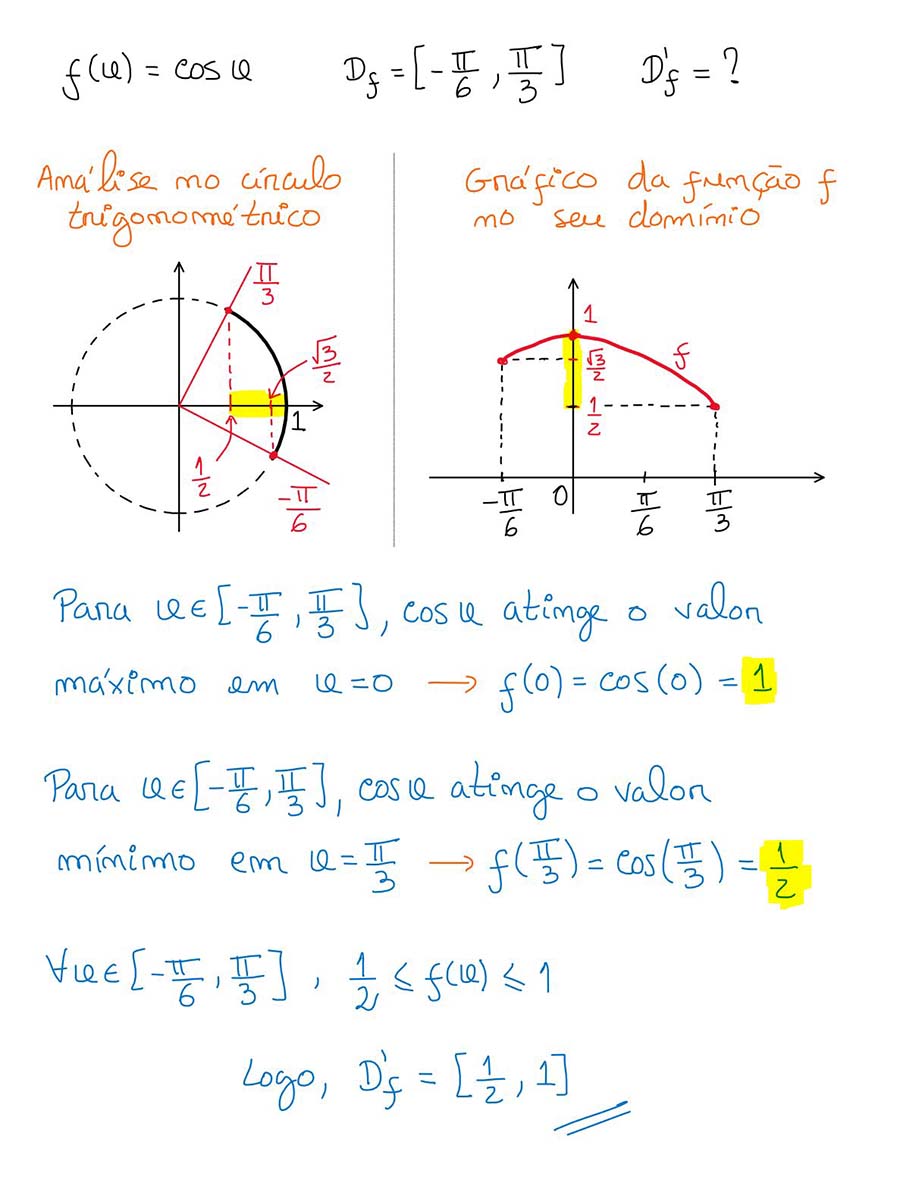 f(x) = cos x   D_f = [-π/6, π/3]   D'_f = ?
Análise no círculo
trigonométrico
π/3
√3/2
1
1/2
-π/6
Gráfico da função f
no seu domínio
1
f
√3/2
1/2
-π/6 0 π/6 π/3
Para x ∈ [-π/6, π/3], cos x atinge o valor
máximo em x = 0 → f(0) = cos(0) = 1
Para x ∈ [-π/6, π/3], cos x atinge o valor
mínimo em x = π/3 → f(π/3) = cos(π/3) = 1/2
∀x ∈ [-π/6, π/3], 1/2 ≤ f(x) ≤ 1
Logo, D'_f = [1/2, 1]